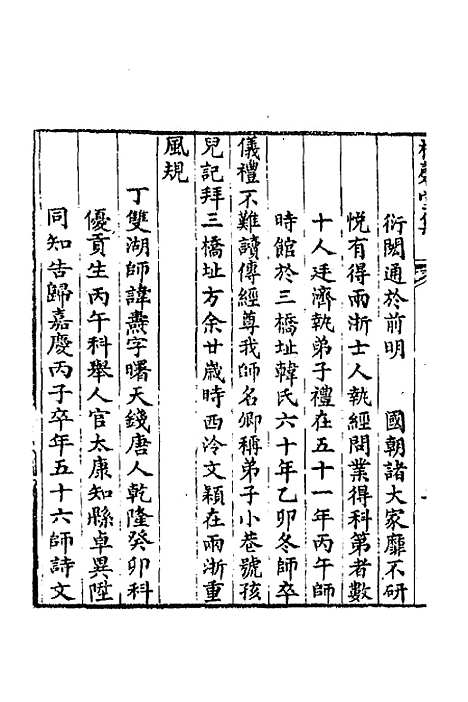 衍闕通於前明　國朝諸大家靡不研
悅有得兩浙士人執經問業得科第者數
十人廷濟執弟子禮在五十一年丙午師
時館於三橋址韓氏六十年乙卯冬師卒
儀禮不難讀傳經尊我師名卿稱弟子小巷號孩
兒記拜三橋址方余廿歲時西泠文穎在兩浙重
風規
丁雙湖師諱𤏡字曙天錢唐人乾隆癸卯科
優貢生丙午科舉人官太康知縣卓異陞
同知告歸嘉慶丙子卒年五十六師詩文